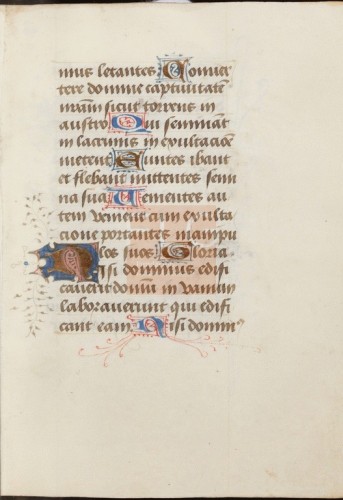 mus letantes Conuer
tere domine captiuitatē
nrām sicut torrens in
austro Qui semināt
in lacrimis in exultacione
metent Euntes ibant
et flebant mittentes semi
na sua Uenientes au
tem venient cum exulta
cione portantes manipu
los suos Gloria
Nisi dominus edifi
cauerit domū in vanum
laborauerunt qui edifi
cant eam Nisi domin